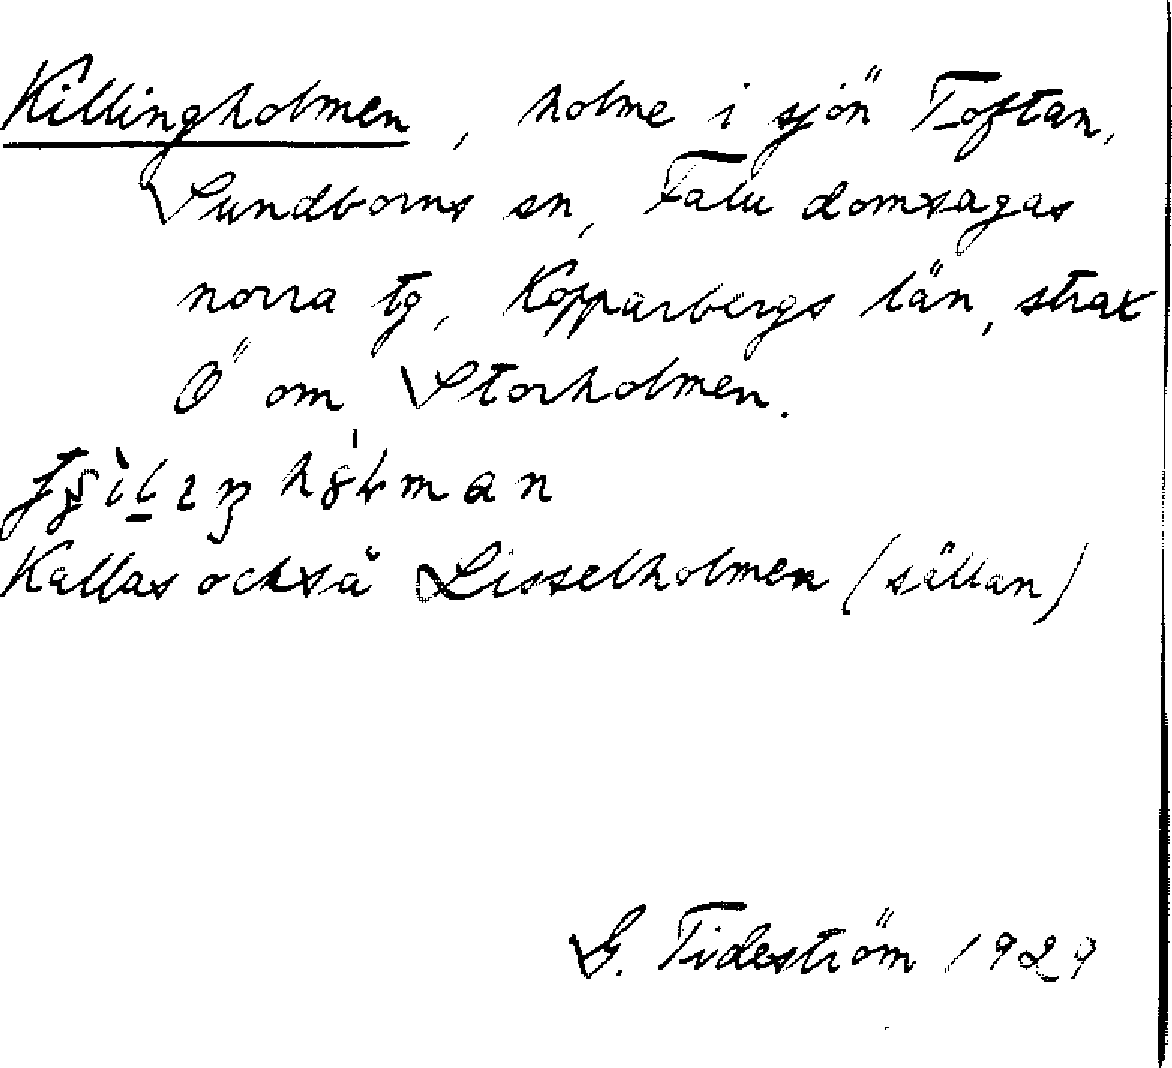 Killingholmen, holme i sjön Toftan,
Sundborns sn, Falu domsagas
norra tg, Kopparbergs län, strax
Ö om Storholmen.
Kallas också Lisselholmen (sällan)
G. Tideström 1929